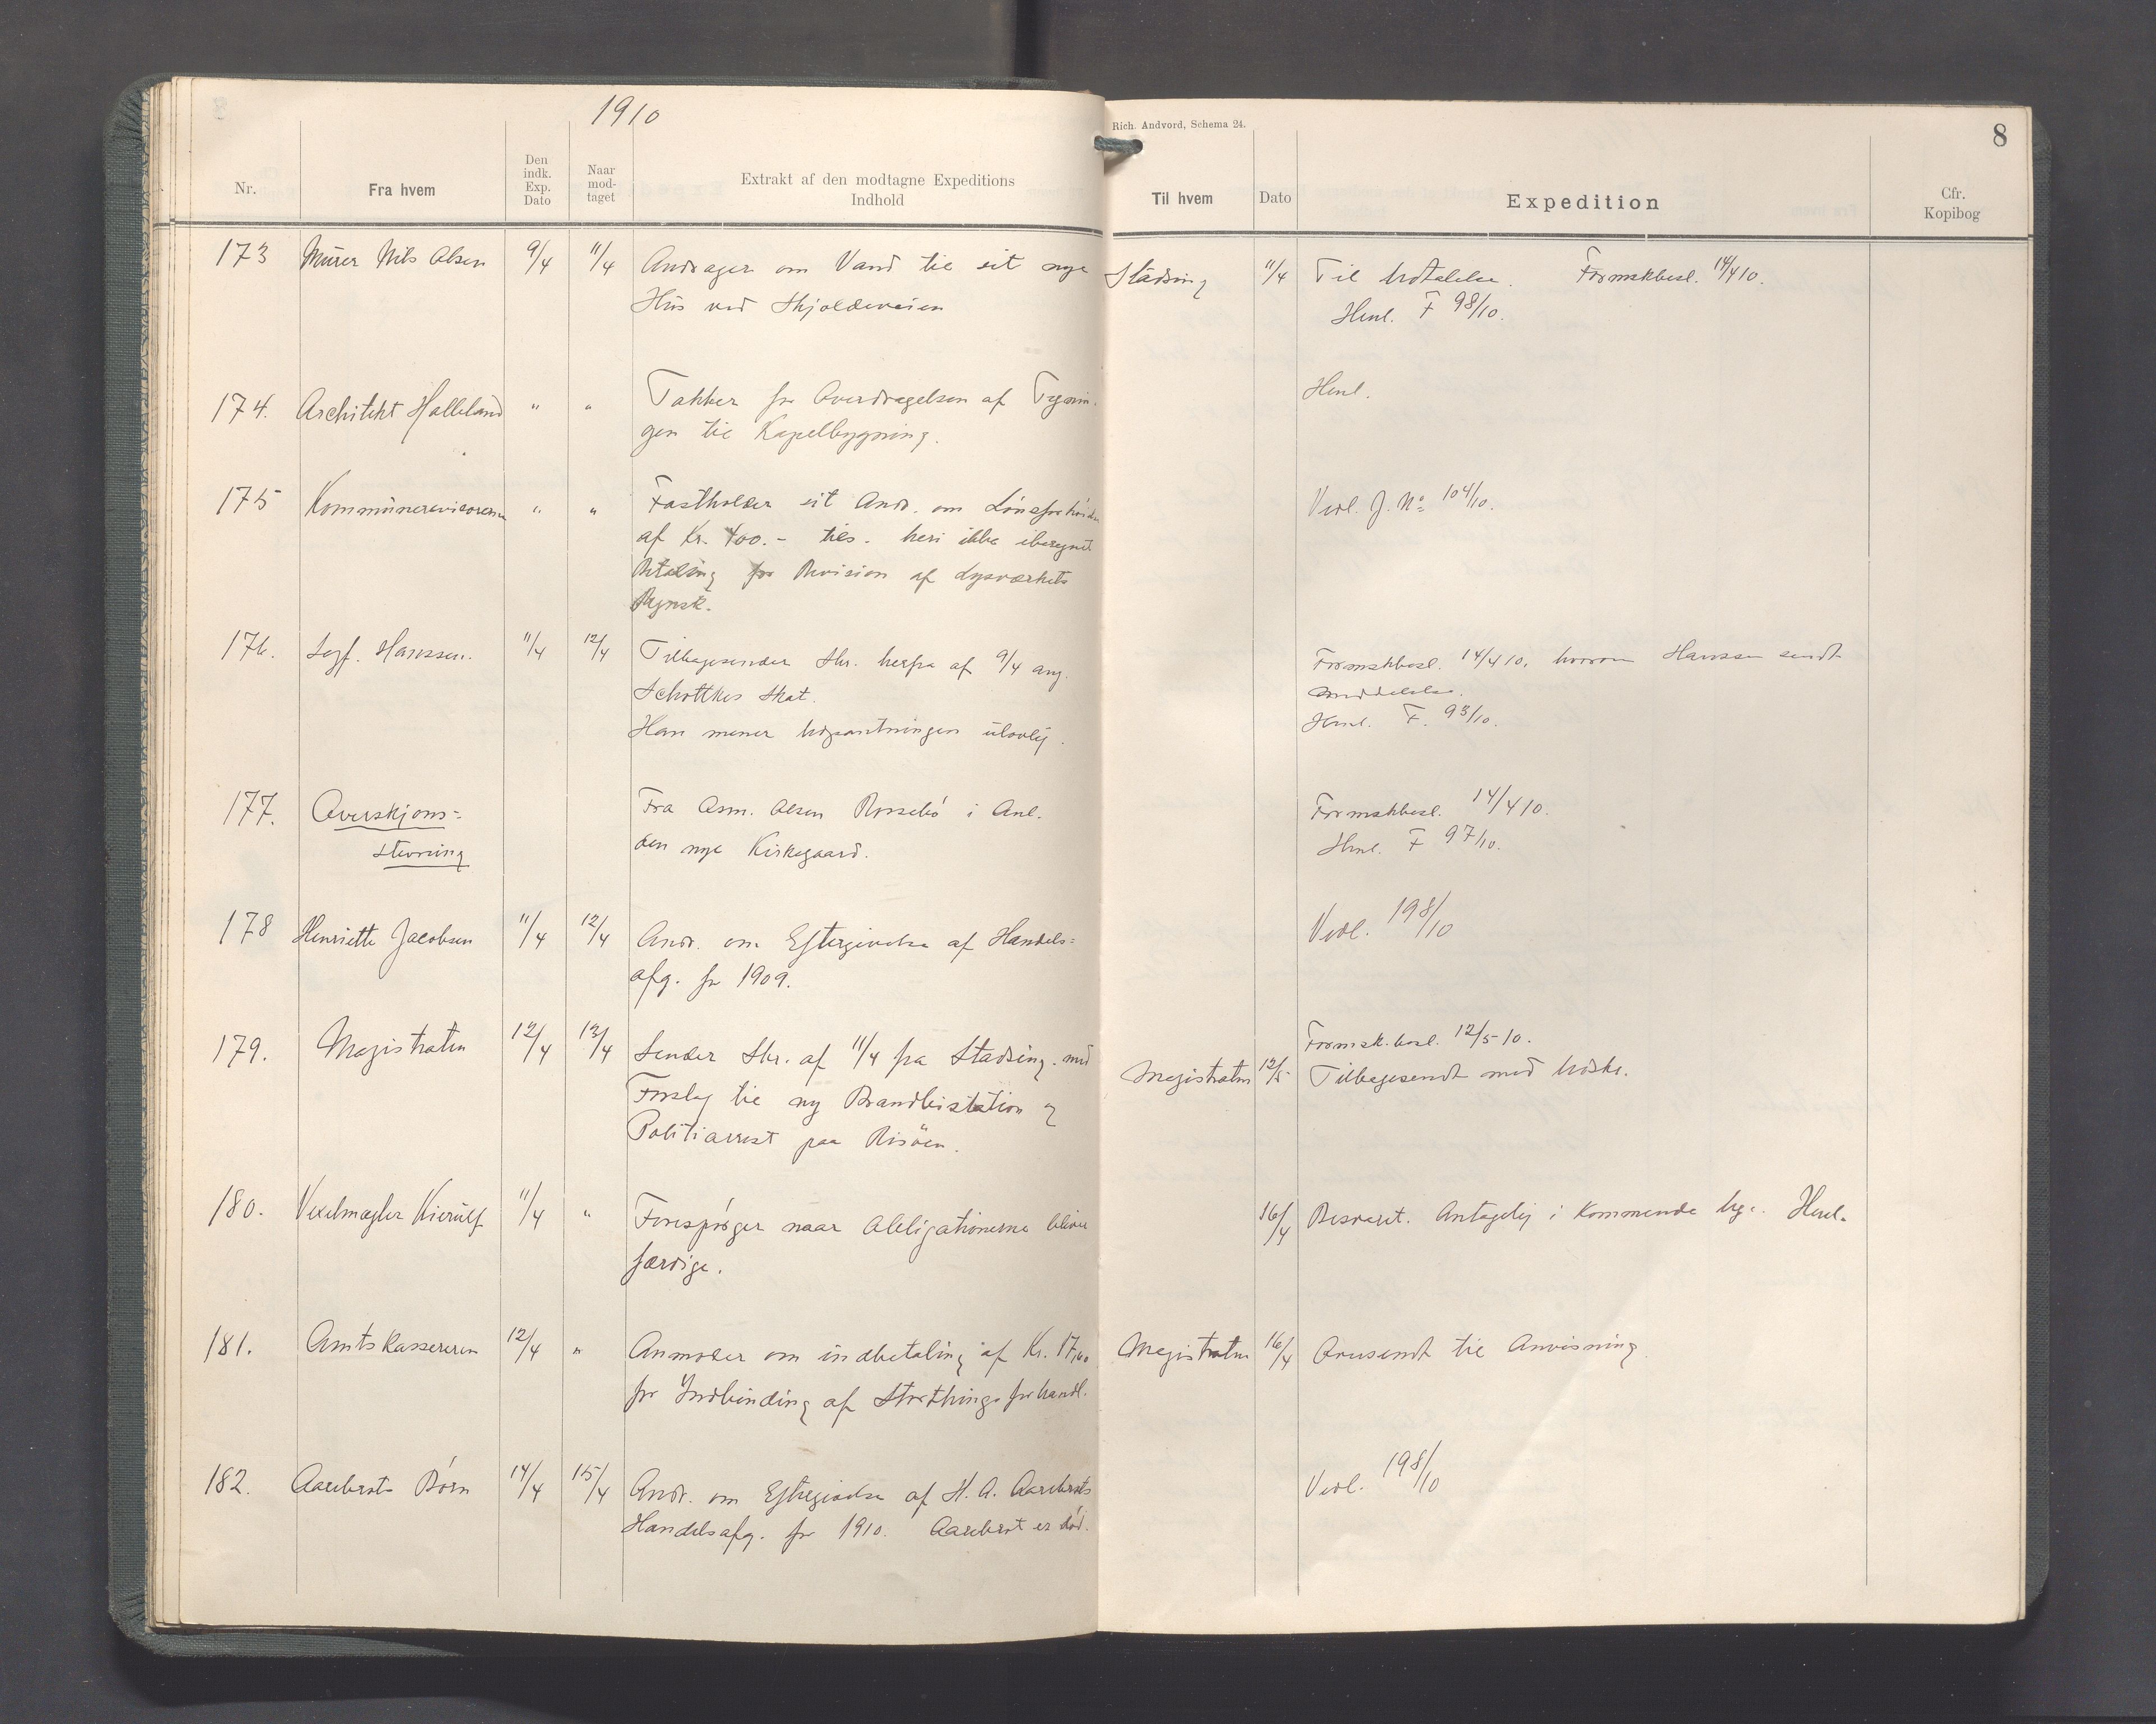 1910
Rich. Andvord, Schema 24.
8
Nr.
Fra hvem
Den indk. Exp. Dato
Naar mod-taget
Extrakt af den modtagne Expeditions
Indhold
Til hvem
Dato
Expedition
Cfr.
Kopibog
173 Murer Nils Olsen 9/4 11/4 Andrager om Vand til sit nye Stadsing 11/4 Til Udtalelse. Formskbesl. 14/4 10.
Hus ved Skjoldeveien
Henl. F 98/10.
174. Architekt Halleland " " Takker for Overdragelsen af Tegnin-
gen til Kapelbygning.
Henl.
175 Kommunerevisoren " " Fastholder sit Andr. om Lønsforhøi
af Kr. 400.- tils. heri ikke iberegnet
Betaling for Revision af Lysværkets
Regnsk.
Vedl. J. No 104/10.
176. Sagf. Hanssen. 11/4 12/4 Tilbagesender Skr. herfra af 9/4 ang.
Schøttkes Skat.
Han mener Udpantningen ulovlig.
Formskbesl. 14/4 10, hvorom Hanssen sendt
Meddelelse.
Henl. F. 93/10.
177. Overskjøns-
stevning
Fra Asm. Olsen Rossebø i Anl.
den nye Kirkegaard.
Formskbesl. 14/4 10.
Henl. F 97/10.
178 Henriette Jacobsen 11/4 12/4 Andr. om Eftergivelse af Handels-
afg. for 1909.
Vedl. 198/10
179. Magistraten 12/4 13/4 Sender Skr. af 11/4 fra Stadsing. med
Forslag til ny Brandbistation og
Politiarrest paa Risöen.
Formsk.besl. 12/5-10.
Magistraten 12/5 Tilbagesendt med Udskr.
180. Vexelmægler Kierulf 11/4 " Forespørger naar Obligationerne bliver
færdige.
16/4 Besvaret. Antagelig i kommende Uge. Henl.
181. Amtskassereren 12/4 " Anmoder om indbetaling af Kr. 17,60
for Indbinding af Storthingsforhandl.
Magistraten 16/4 Oversendt til Anvisning
182. Aarebrots Børn 14/4 15/4 Andr. om Eftergivelse af H. A. Aarebrots
Handelsafg. for 1910. Aarebrot er død.
Vedl. 198/10